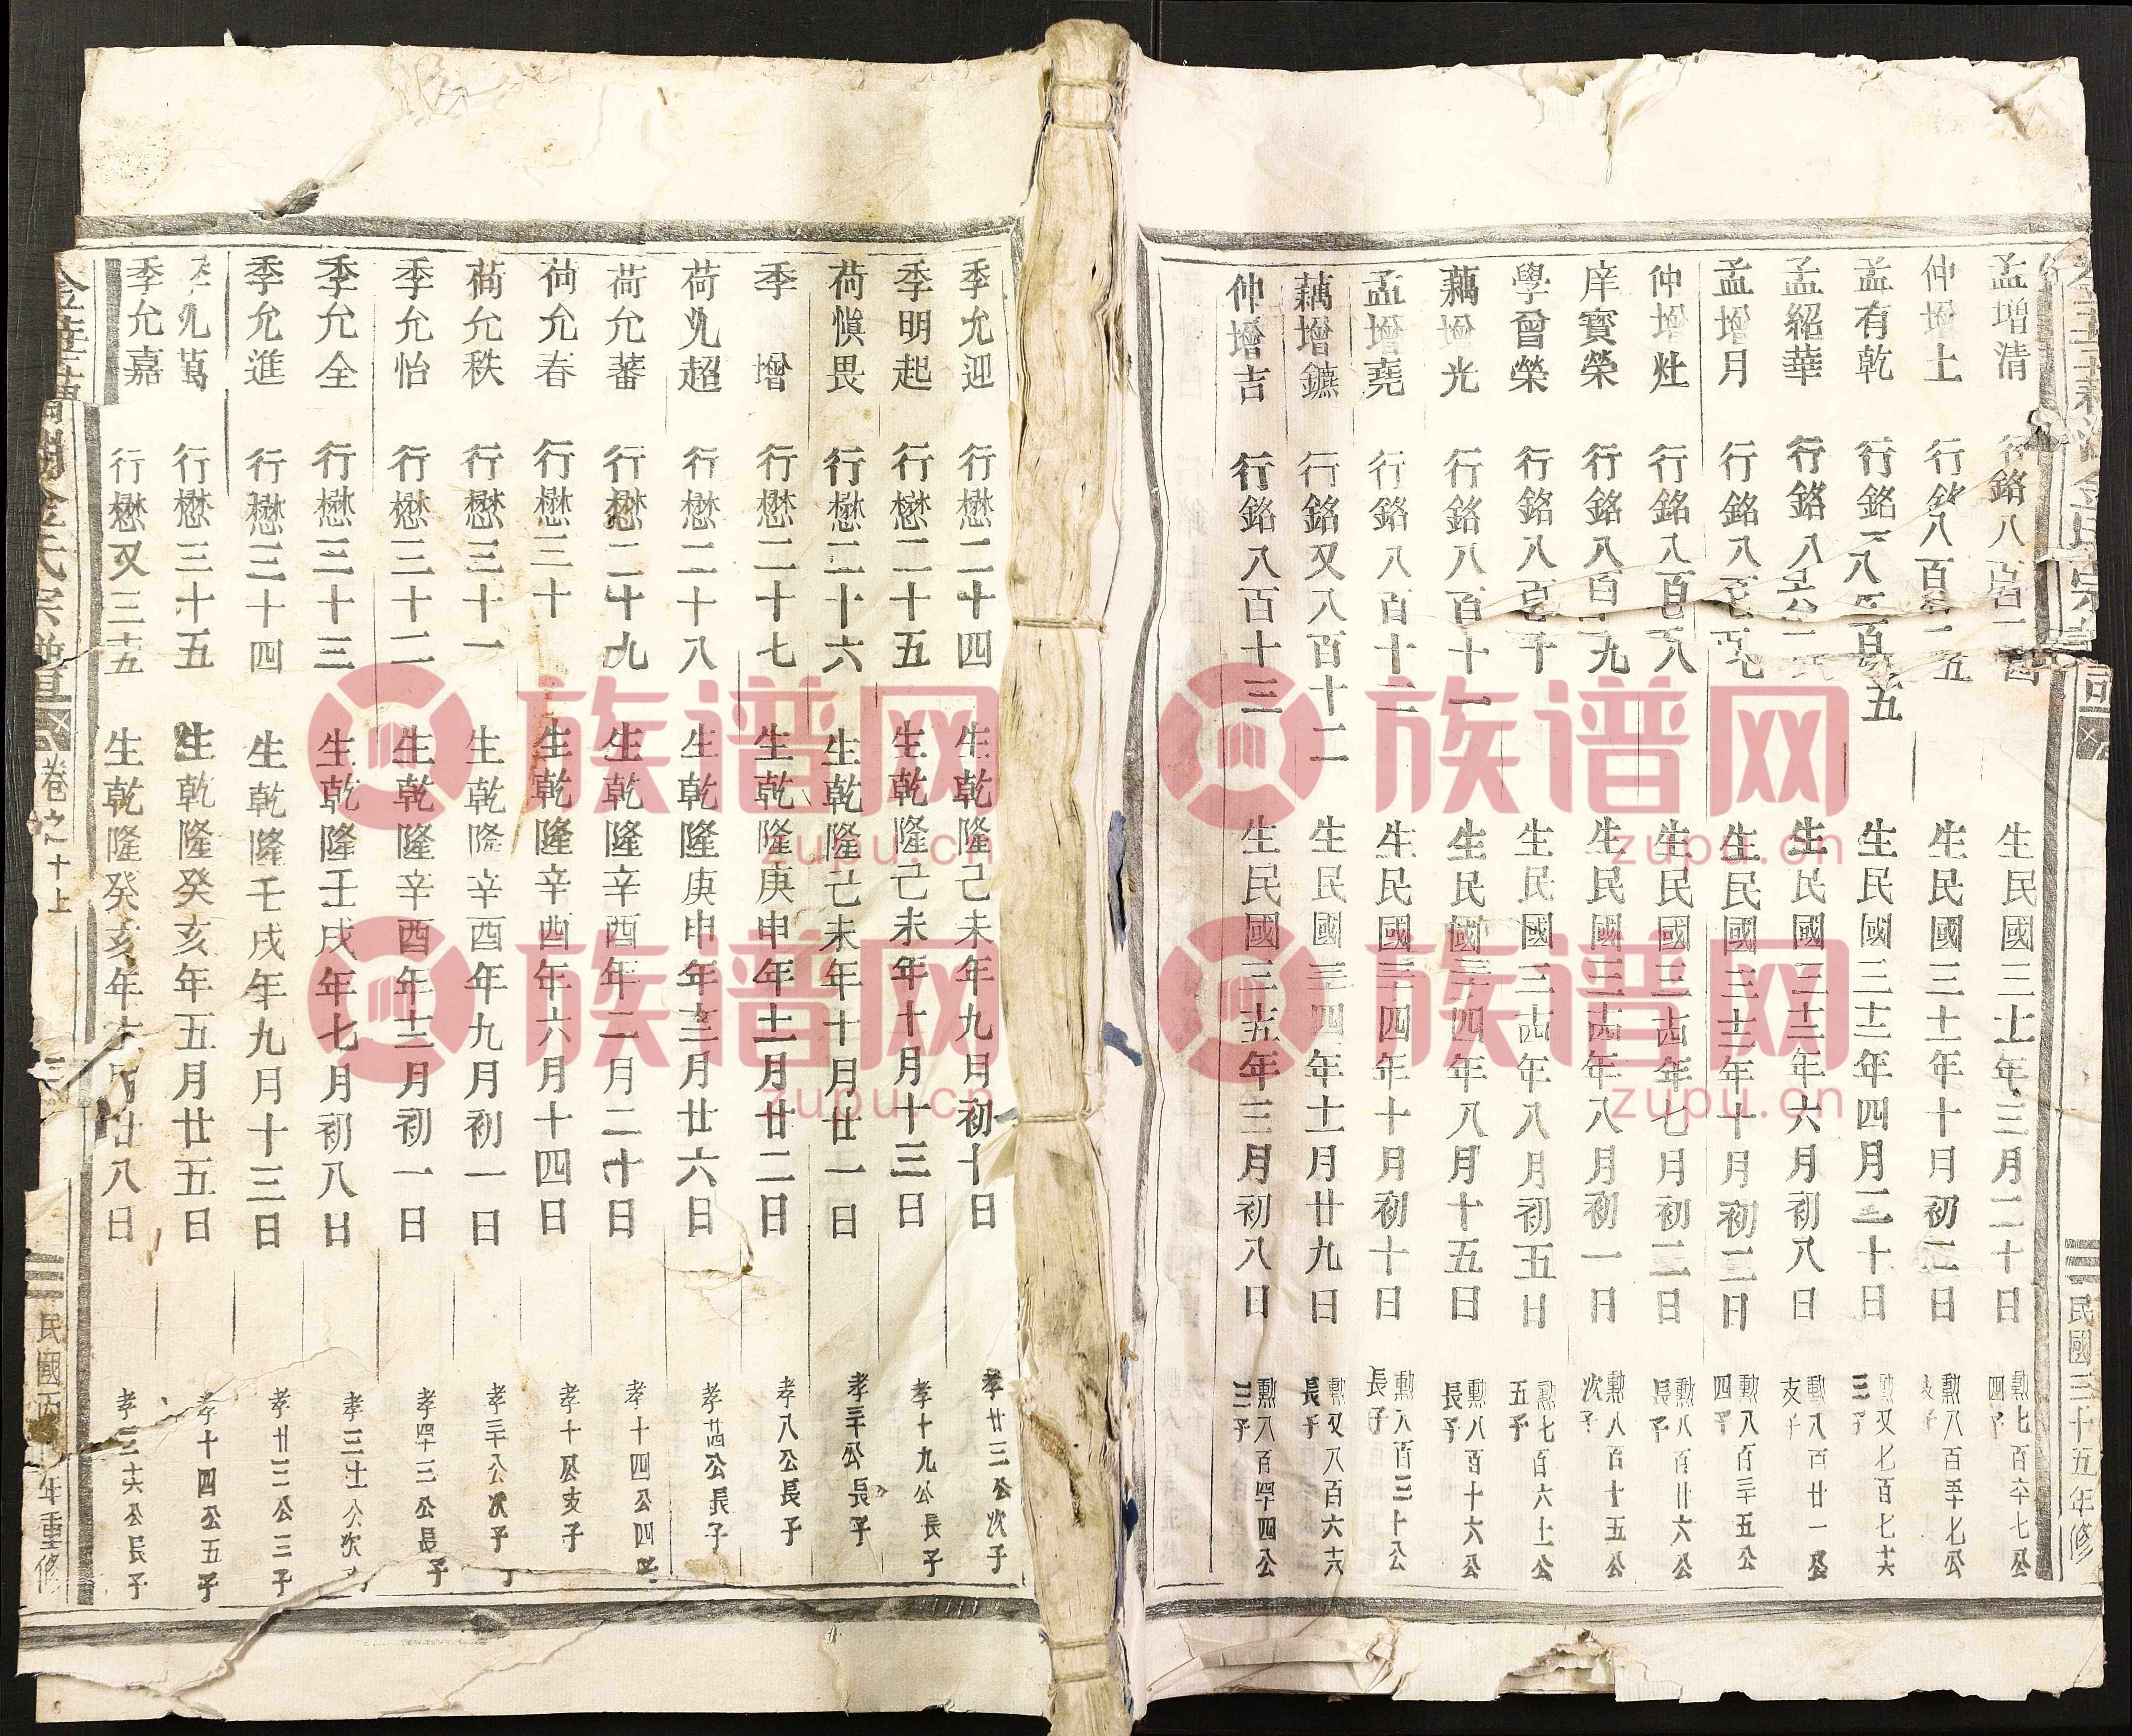 孟增清 行銘八百 生民國三十一年三月二十日 勲七百六十七公四子
仲增上 行銘八百 五 生民國三十一年十月初二日 勲八百五十七公
孟有乾 行銘 八百 五 生民國三十二年四月二十日 勲又七百七十六三子
孟紹華 行銘八百六 生民國三十三年六月初八日 勲八百廿一公支子
孟增月 行銘八百七 生民國三十三年十月初二日 勲八百三十五公四子
仲增灶 行銘八百八 生民國三十四年七月初二日 勲八百廿六公長子
庠寳榮 行銘八百九 生民國三十四年八月初一日 勲八百十五公次子
學曾榮 行銘八百十 生民國三十四年八月初五日 勲七百六十一公五子
藕增光 行銘八百十一 生民國三十四年八月十五日 勲八百十六公長子
孟增堯 行銘八百十二 生民國三十四年十月初十日 勲八百三十公長子
藕增鑣 行銘又八百十二 生民國三十四年十一月廿九日 勲又八百六十六長子
仲增吉 行銘八百十三 生民國三十五年三月初八日 勲八百四十四公三子
民國三十五年修
季允迎 行懋二十四 生乾隆己未年九月初十日 孝廿三公次子
季明起 行懋二十五 生乾隆己未年十月十三日 孝十九公長子
荷愼畏 行懋二十六 生乾隆己未年十月廿一日 孝三十公長子
季增 行懋二十七 生乾隆庚申年十一月廿二日 孝八公長子
荷允超 行懋二十八 生乾隆庚申年三月廿六日 孝廿四公長子
荷允蕃 行懋二十九 生乾隆辛酉年二月二十日 孝十四公四子
荷允春 行懋三十 生乾隆辛酉年六月十四日 孝十公支子
荷允秩 行懋三十一 生乾隆辛酉年九月初一日 孝三十公次子
季允怡 行懋三十二 生乾隆辛酉年十二月初一日 孝四十三公長子
季允全 行懋三十三 生乾隆壬戌年七月初八日 孝三十一公次子
季允進 行懋三十四 生乾隆壬戌年九月十三日 孝廿三公三子
季允萬 行懋三十五 生乾隆癸亥年五月廿五日 孝十四公五子
季允嘉 行懋又三十五 生乾隆癸亥年 月廿八日 孝三十六公長子
金華蘭 金氏宗譜 卷之十上 民國丙 年重修
族谱网
zupu.cn
族谱网
zupu.cn
族谱网
zupu.cn
族谱网
zupu.cn